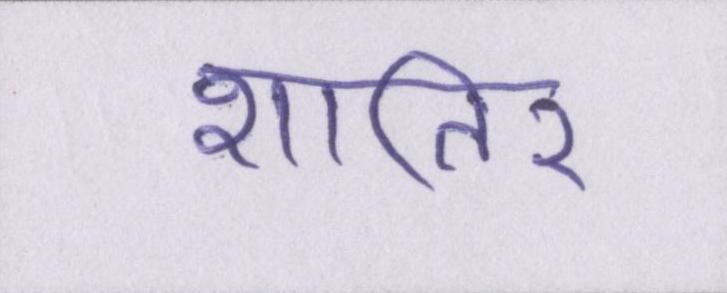 शातिर